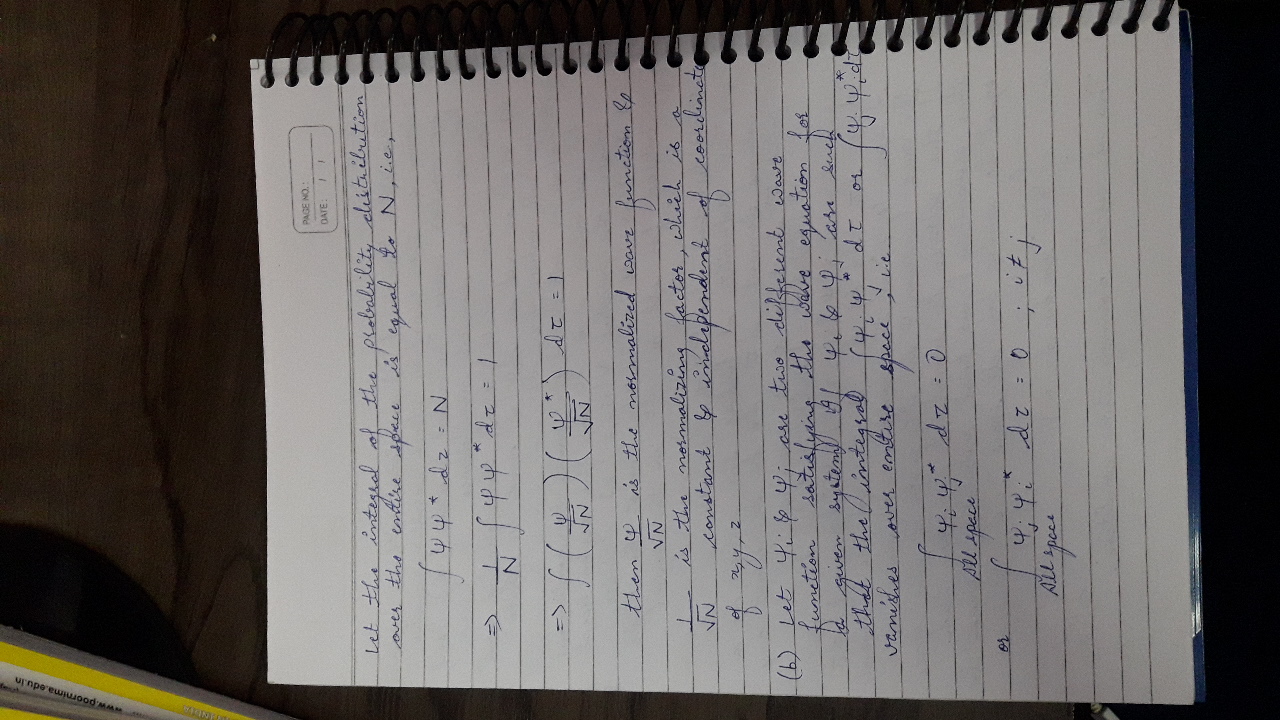 www.poornima.edu.in
PAGE NO.:
DATE: / /
Let the integral of the probability distribution
over the entire space is equal to N, i.e,
∫ ψψ* dz = N
=> 1/N ∫ ψψ* dτ = 1
=> ∫ (ψ/√N) (ψ*/√N) dτ = 1
then ψ/√N is the normalized wave function &
1/√N is the normalizing factor, which is a
constant & independent of coordinate
of x, y, z
(b) Let ψi & ψj are two different wave
function satisfying the wave equation for
a given system. If ψi & ψj are such
that the integral ∫ψi ψj* dτ or ∫ψj ψi* dτ
vanishes over entire space, i.e
∫ ψi ψj* dτ = 0
All space
or ∫ ψj ψi* dτ = 0 ; i ≠ j
All space